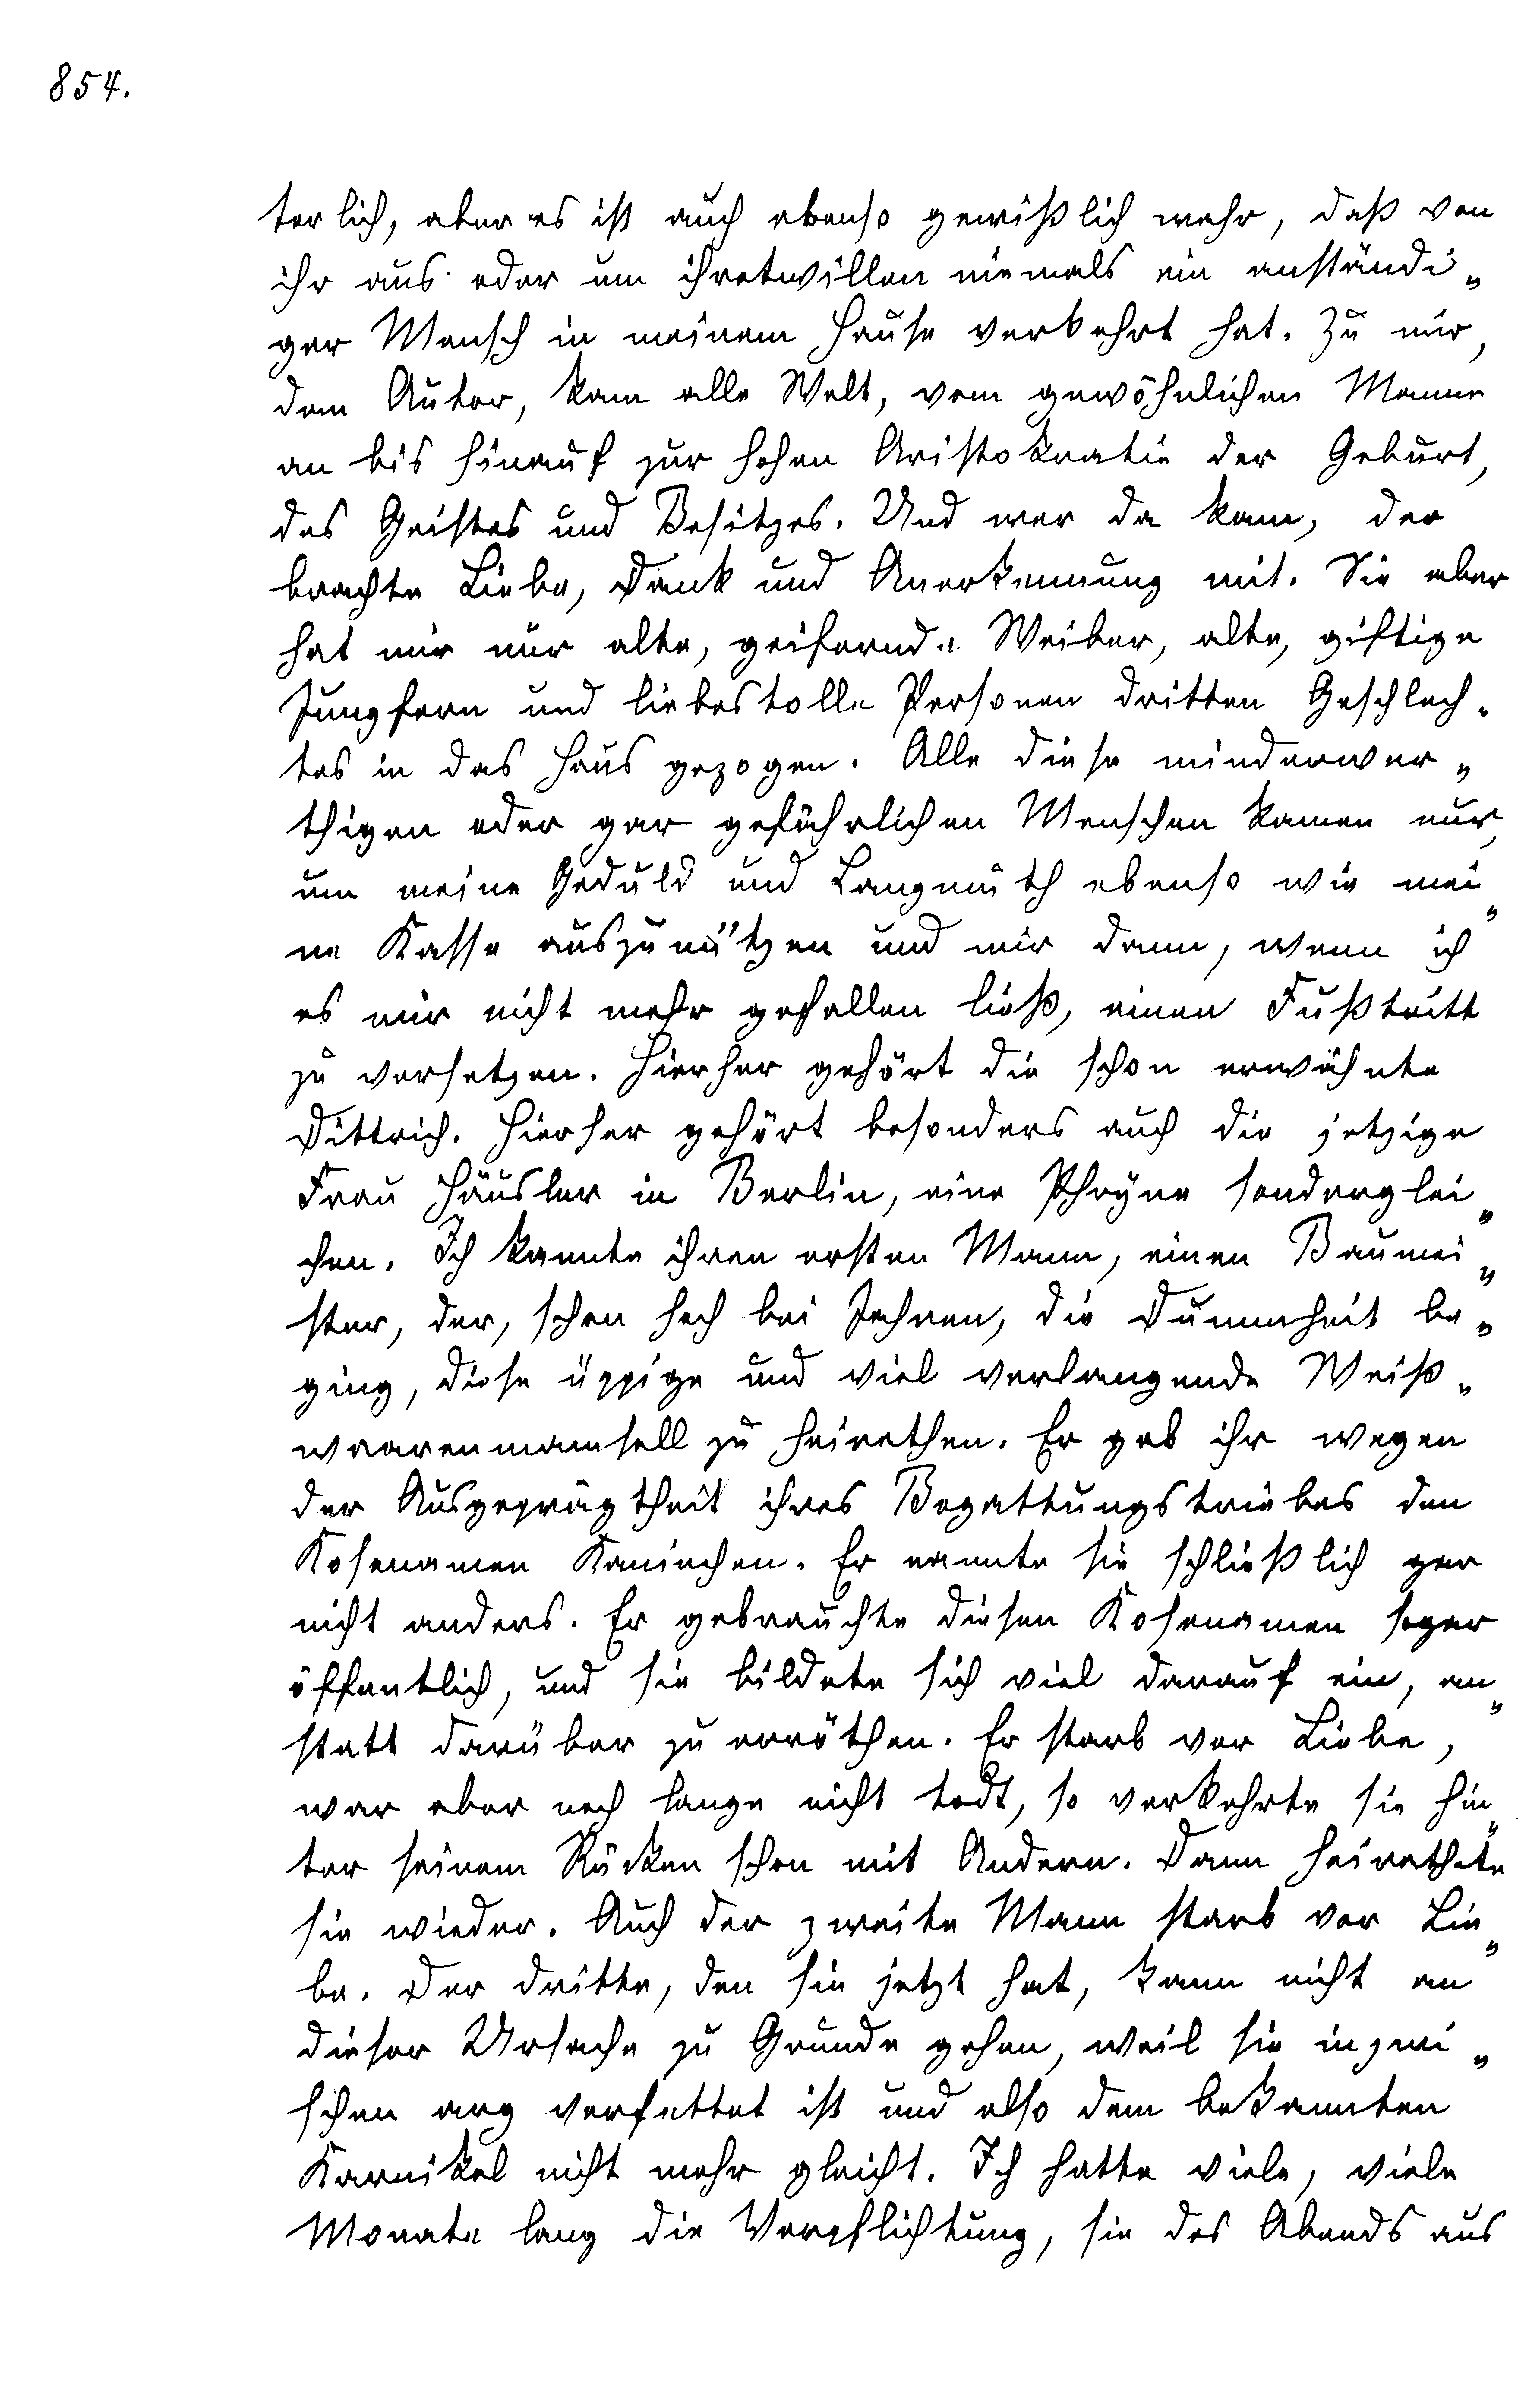 854.
terlich, aber es ist auch ebenso gewißlich wahr, daß von
ihr aus oder um ihretwillen niemals ein anständi„
ger Mensch in meinem Hause verkehrt hat. Zu mir,
dem Autor, kam alle Welt, vom gewöhnlichen Manne
an bis hinauf zur hohen Aristokratie der Geburt,
des Geistes und Besitzes. Und wer da kam, der
brachte Liebe, Dank und Anerkennung mit. Sie aber
hat mir nur alte, geifernde Weiber, alte, giftige
Jungfern und liebestolle Personen dritten Geschlech„
tes in das Haus gezogen. Alle diese minderwer„
thigen oder gar gefährlichen Menschen kamen nur,
um meine Geduld und Langmuth ebenso wie mei„
ne Kasse auszunützen und mir dann, wenn ich
es mir nicht mehr gefallen ließ, einen Fußtritt
zu versetzen. Hierher gehört die schon erwähnte
Dittrich. Hierher gehört besonders auch die jetzige
Frau Häusler in Berlin, eine Phryne sonderglei„
chen. Ich kannte ihren ersten Mann, einen Baumei„
ster, der, schon hoch bei Jahren, die Dummheit be„
ging, diese üppige und viel verlangende Weiß„
waarenmamsell zu heirathen. Er gab ihr wegen
der Ausgeprägtheit ihres Begattungstriebes den
Kosenamen Kaninchen. Er nannte sie schließlich gar
nicht anders. Er gebrauchte diesen Kosenamen sogar
öffentlich, und sie bildete sich viel darauf ein, an„
statt darüber zu erröthen. Er starb vor Liebe,
war aber noch lange nicht todt, so verkehrte sie hin„
ter seinem Rücken schon mit Andern. Dann heirathete
sie wieder. Auch der zweite Mann starb vor Lie„
be. Der dritte, den sie jetzt hat, kann nicht an
dieser Ursache zu Grunde gehen, weil sie inzwi„
schen arg verfettet ist und also dem bekannten
Karnikel nicht mehr gleicht. Ich hatte viele, viele
Monate lang die Verpflichtung, sie des Abends aus